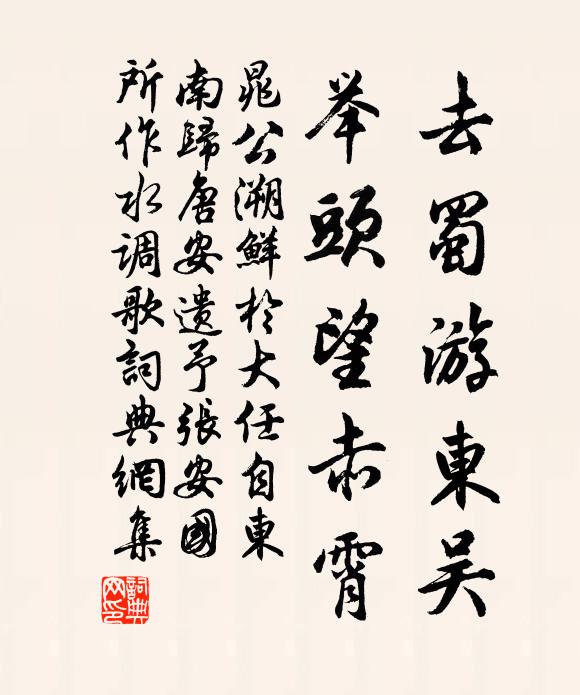 去蜀游東吴
举頭望赤霄
晁公溯鮮於大任自東
南歸唐安遺予張安國
所作水調歌詞典網集
詞典
网印